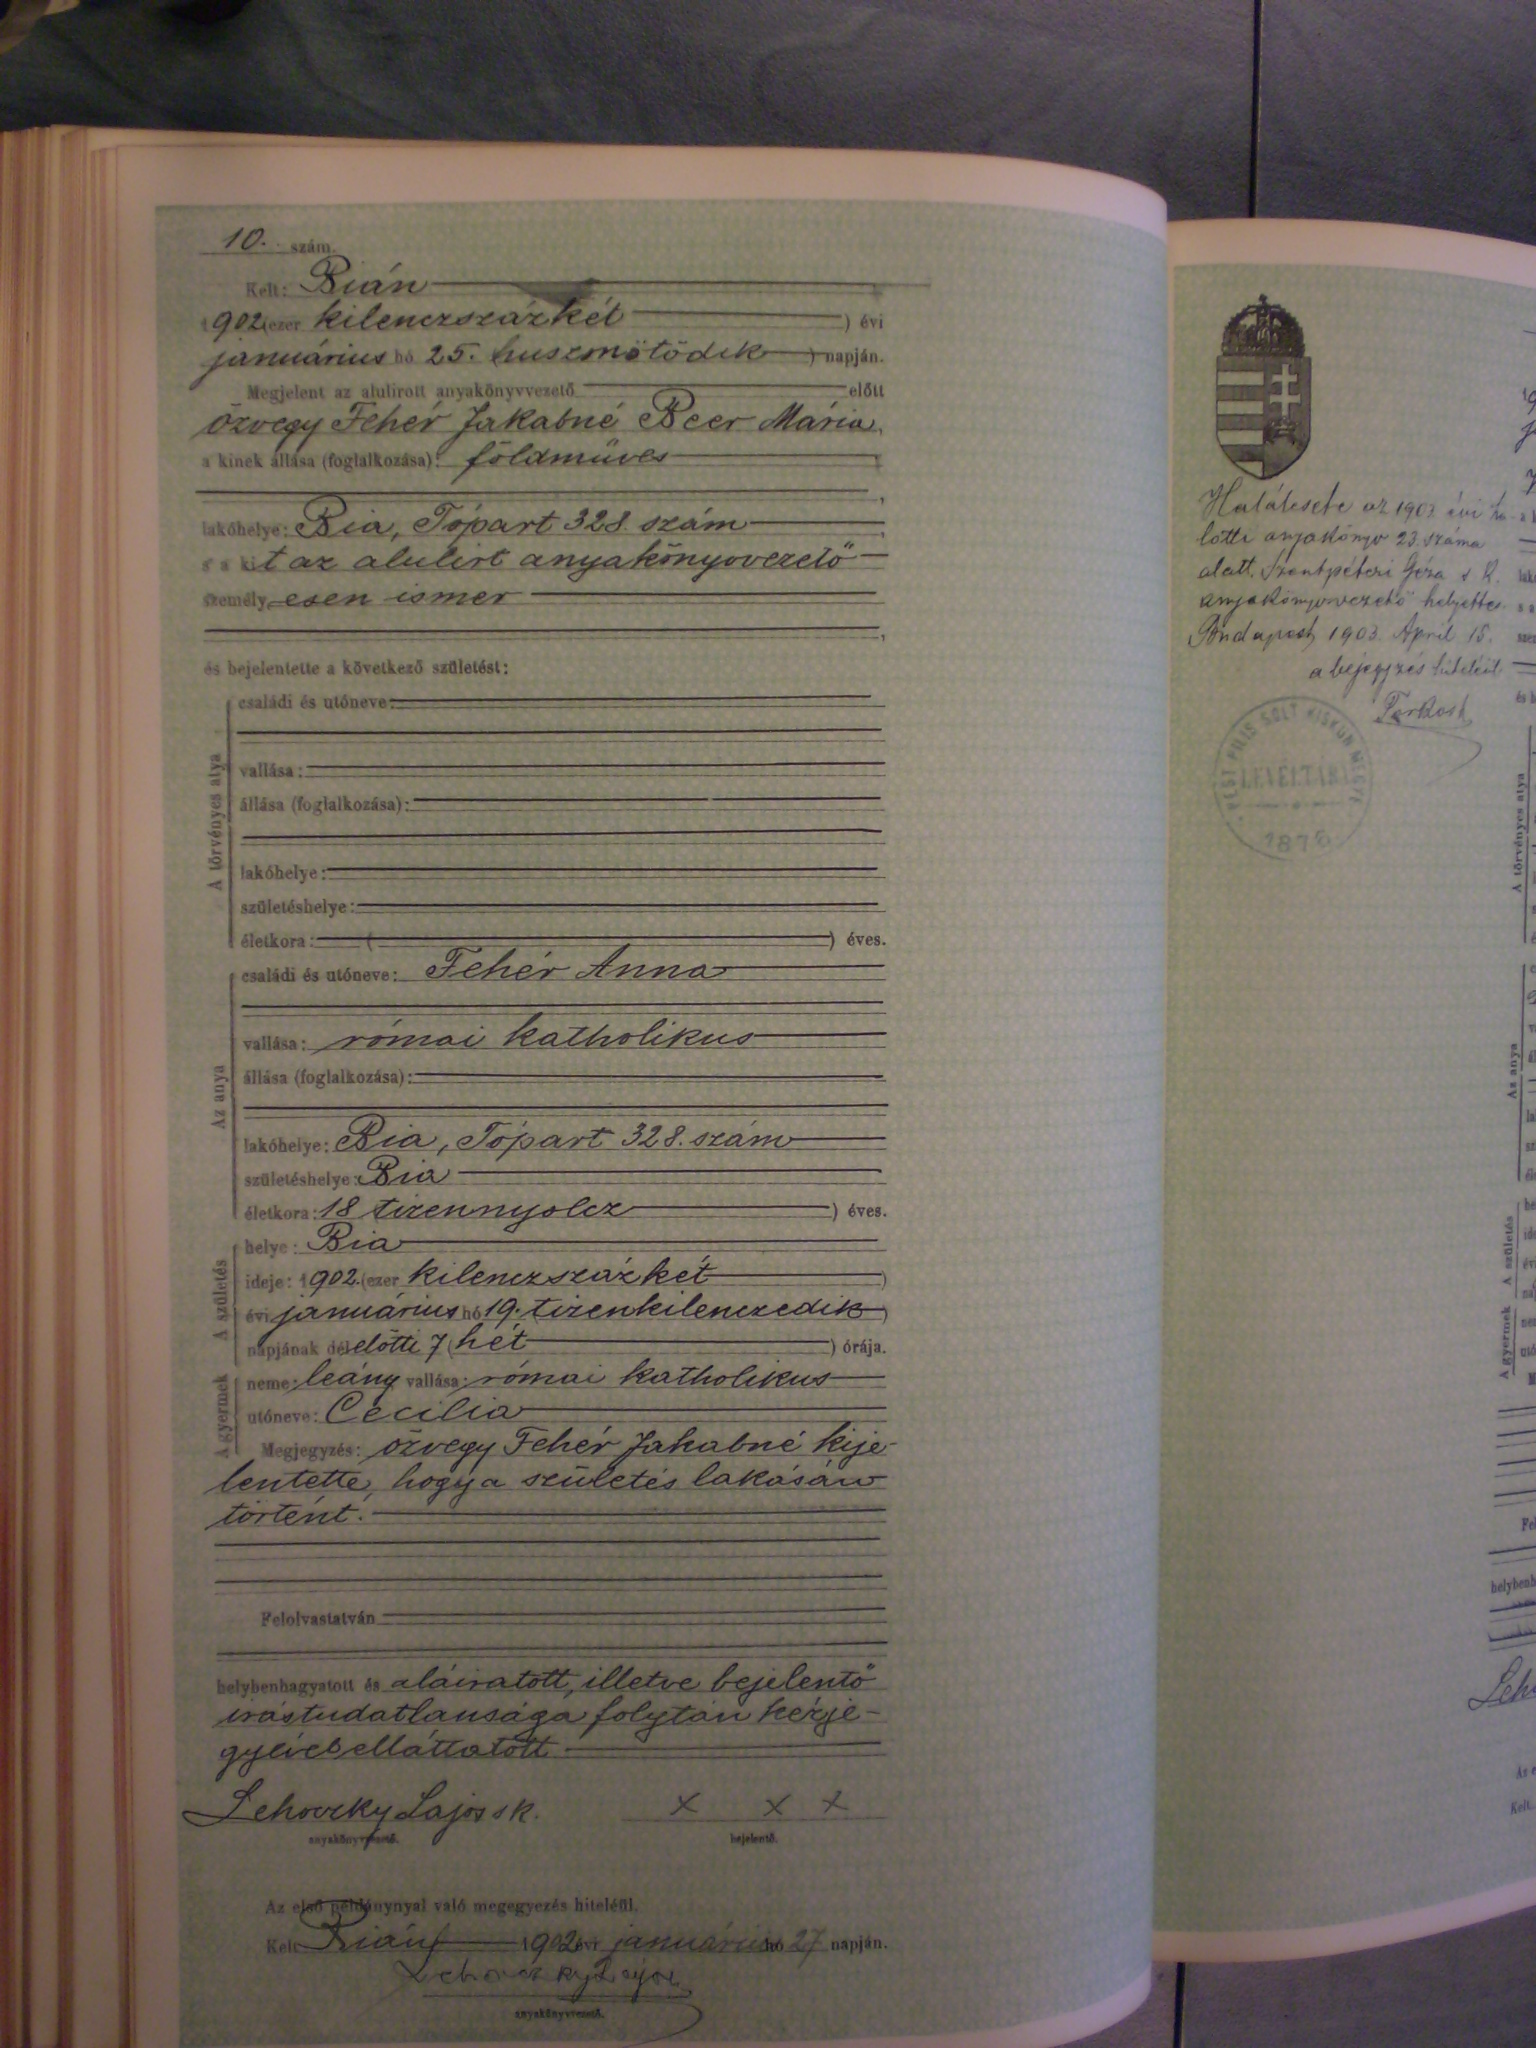 10. szám.
Kelt: Bián
1902 (ezer kilenczszázkét ) évi
januárius hó 25. (huszonötödik ) napján.
Megjelent az alulirott anyakönyvvezető előtt
özvegy Fehér Jakabné Beer Mária,
a kinek állása (foglalkozása): földmüves
lakóhelye: Bia, Tópart 328. szám
s a kit az alulirt anyakönyvvezető
személyesen ismer
és bejelentette a következő születést:
A törvényes atya
családi és utóneve:
vallása:
állása (foglalkozása):
lakóhelye:
születéshelye:
életkora: ( ) éves.
Az anya
családi és utóneve: Fehér Anna
vallása: római katholikus
állása (foglalkozása):
lakóhelye: Bia, Tópart 328. szám
születéshelye: Bia
életkora: 18 tizennyolcz ) éves.
A születés
helye: Bia
ideje: 1902. (ezer kilenczszázkét )
évi januárius hó 19. tizenkilenczedik )
napjának délelőtti 7 (hét ) órája.
A gyermek
neme: leány vallása: római katholikus
utóneve: Cecilia
Megjegyzés: özvegy Fehér Jakabné kije-
lentette, hogy a születés lakásán
történt.
Felolvastatván
helybenhagyatott és aláiratott, illetve bejelentő
irástudatlansága folytán kézje-
gyével elláttatott
Lehoczky Lajos sk. x x x
anyakönyvvezető. bejelentő.
Az első példánynyal való megegyezés hiteléül.
Kelt Bián 1902 évi januárius hó 27 napján.
Lehoczky Lajos
anyakönyvvezető.
Halálesete az 1903. évi ha-
lotti anyakönyv 23. száma
alatt. Szentpéteri Géza s. k.
anyakönyvvezető helyettes.
Budapest, 1903. April 15.
a bejegyzés hiteléül
PEST PILIS SOLT KISKUN MEGYE
LEVÉLTÁRA
1876
A törvényes atya
Az anya
A születés
A gyermek